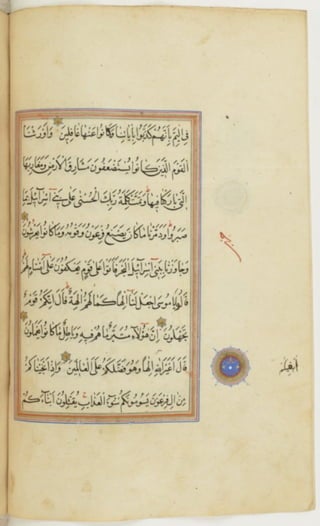 فِي الْيَمِّ بِأَنَّهُمْ كَذَّبُوا بِآيَاتِنَا وَكَانُوا عَنْهَا غَافِلِينَ وَأَوْرَثْنَا
الْقَوْمَ الَّذِينَ كَانُوا يُسْتَضْعَفُونَ مَشَارِقَ الْأَرْضِ وَمَغَارِبَهَا
الَّتِي بَارَكْنَا فِيهَا وَتَمَّتْ كَلِمَةُ رَبِّكَ الْحُسْنَى عَلَى بَنِي إِسْرَائِيلَ بِمَا
صَبَرُوا وَدَمَّرْنَا مَا كَانَ يَصْنَعُ فِرْعَوْنُ وَقَوْمُهُ وَمَا كَانُوا يَعْرِشُونَ
وَجَاوَزْنَا بِبَنِي إِسْرَائِيلَ الْبَحْرَ فَأَتَوْا عَلَى قَوْمٍ يَعْكُفُونَ عَلَى أَصْنَامٍ لَهُمْ
قَالُوا يَا مُوسَى اجْعَلْ لَنَا إِلَهًا كَمَا لَهُمْ آلِهَةٌ قَالَ إِنَّكُمْ قَوْمٌ
تَجْهَلُونَ إِنَّ هَؤُلَاءِ مُتَبَّرٌ مَا هُمْ فِيهِ وَبَاطِلٌ مَا كَانُوا يَعْمَلُونَ
قَالَ أَغَيْرَ اللَّهِ إِلَهًا وَهُوَ فَضَّلَكُمْ عَلَى الْعَالَمِينَ وَإِذْ أَنْجَيْنَاكُمْ
أَبْغِيكُمْ
مِنْ آلِ فِرْعَوْنَ يَسُومُونَكُمْ سُوءَ الْعَذَابِ يُقَتِّلُونَ أَبْنَاءَكُمْ